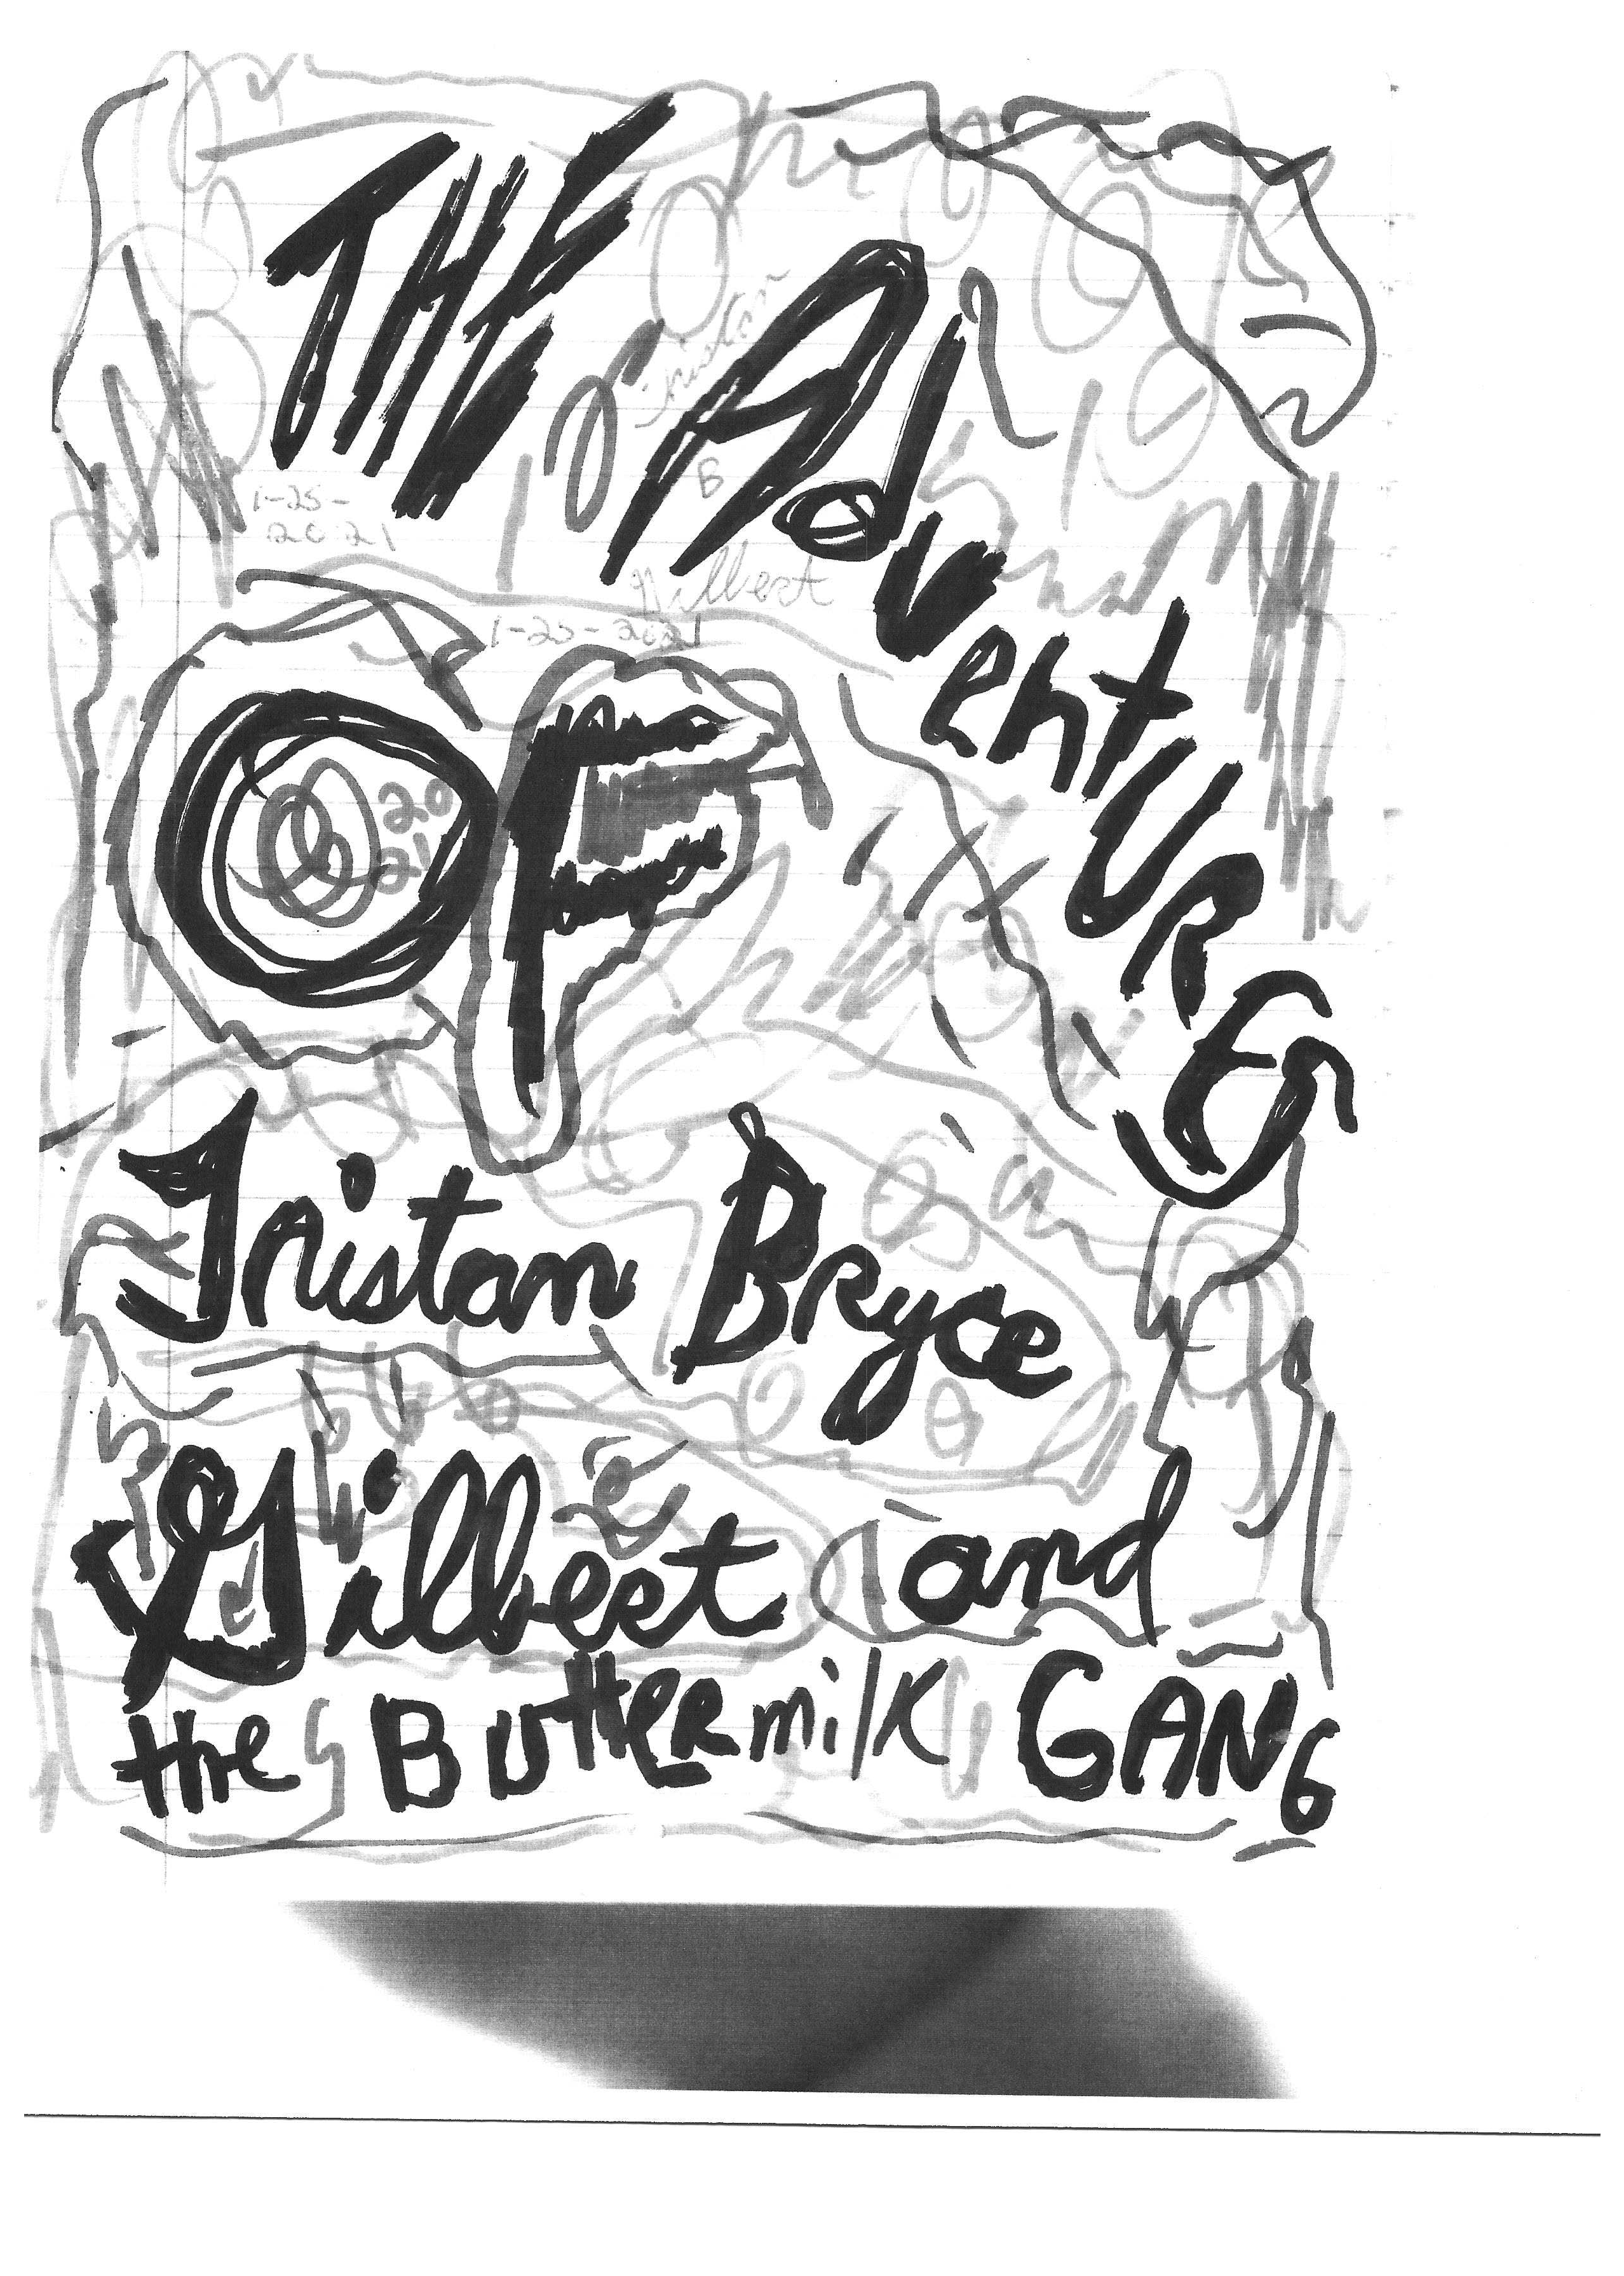 THE
AdventURES
Tristan
B
1-25-
2021
Gilbert
1-25-2021
OF
20
21
Tristan Bryce
Gilbert and
the ButtERmilk GANG